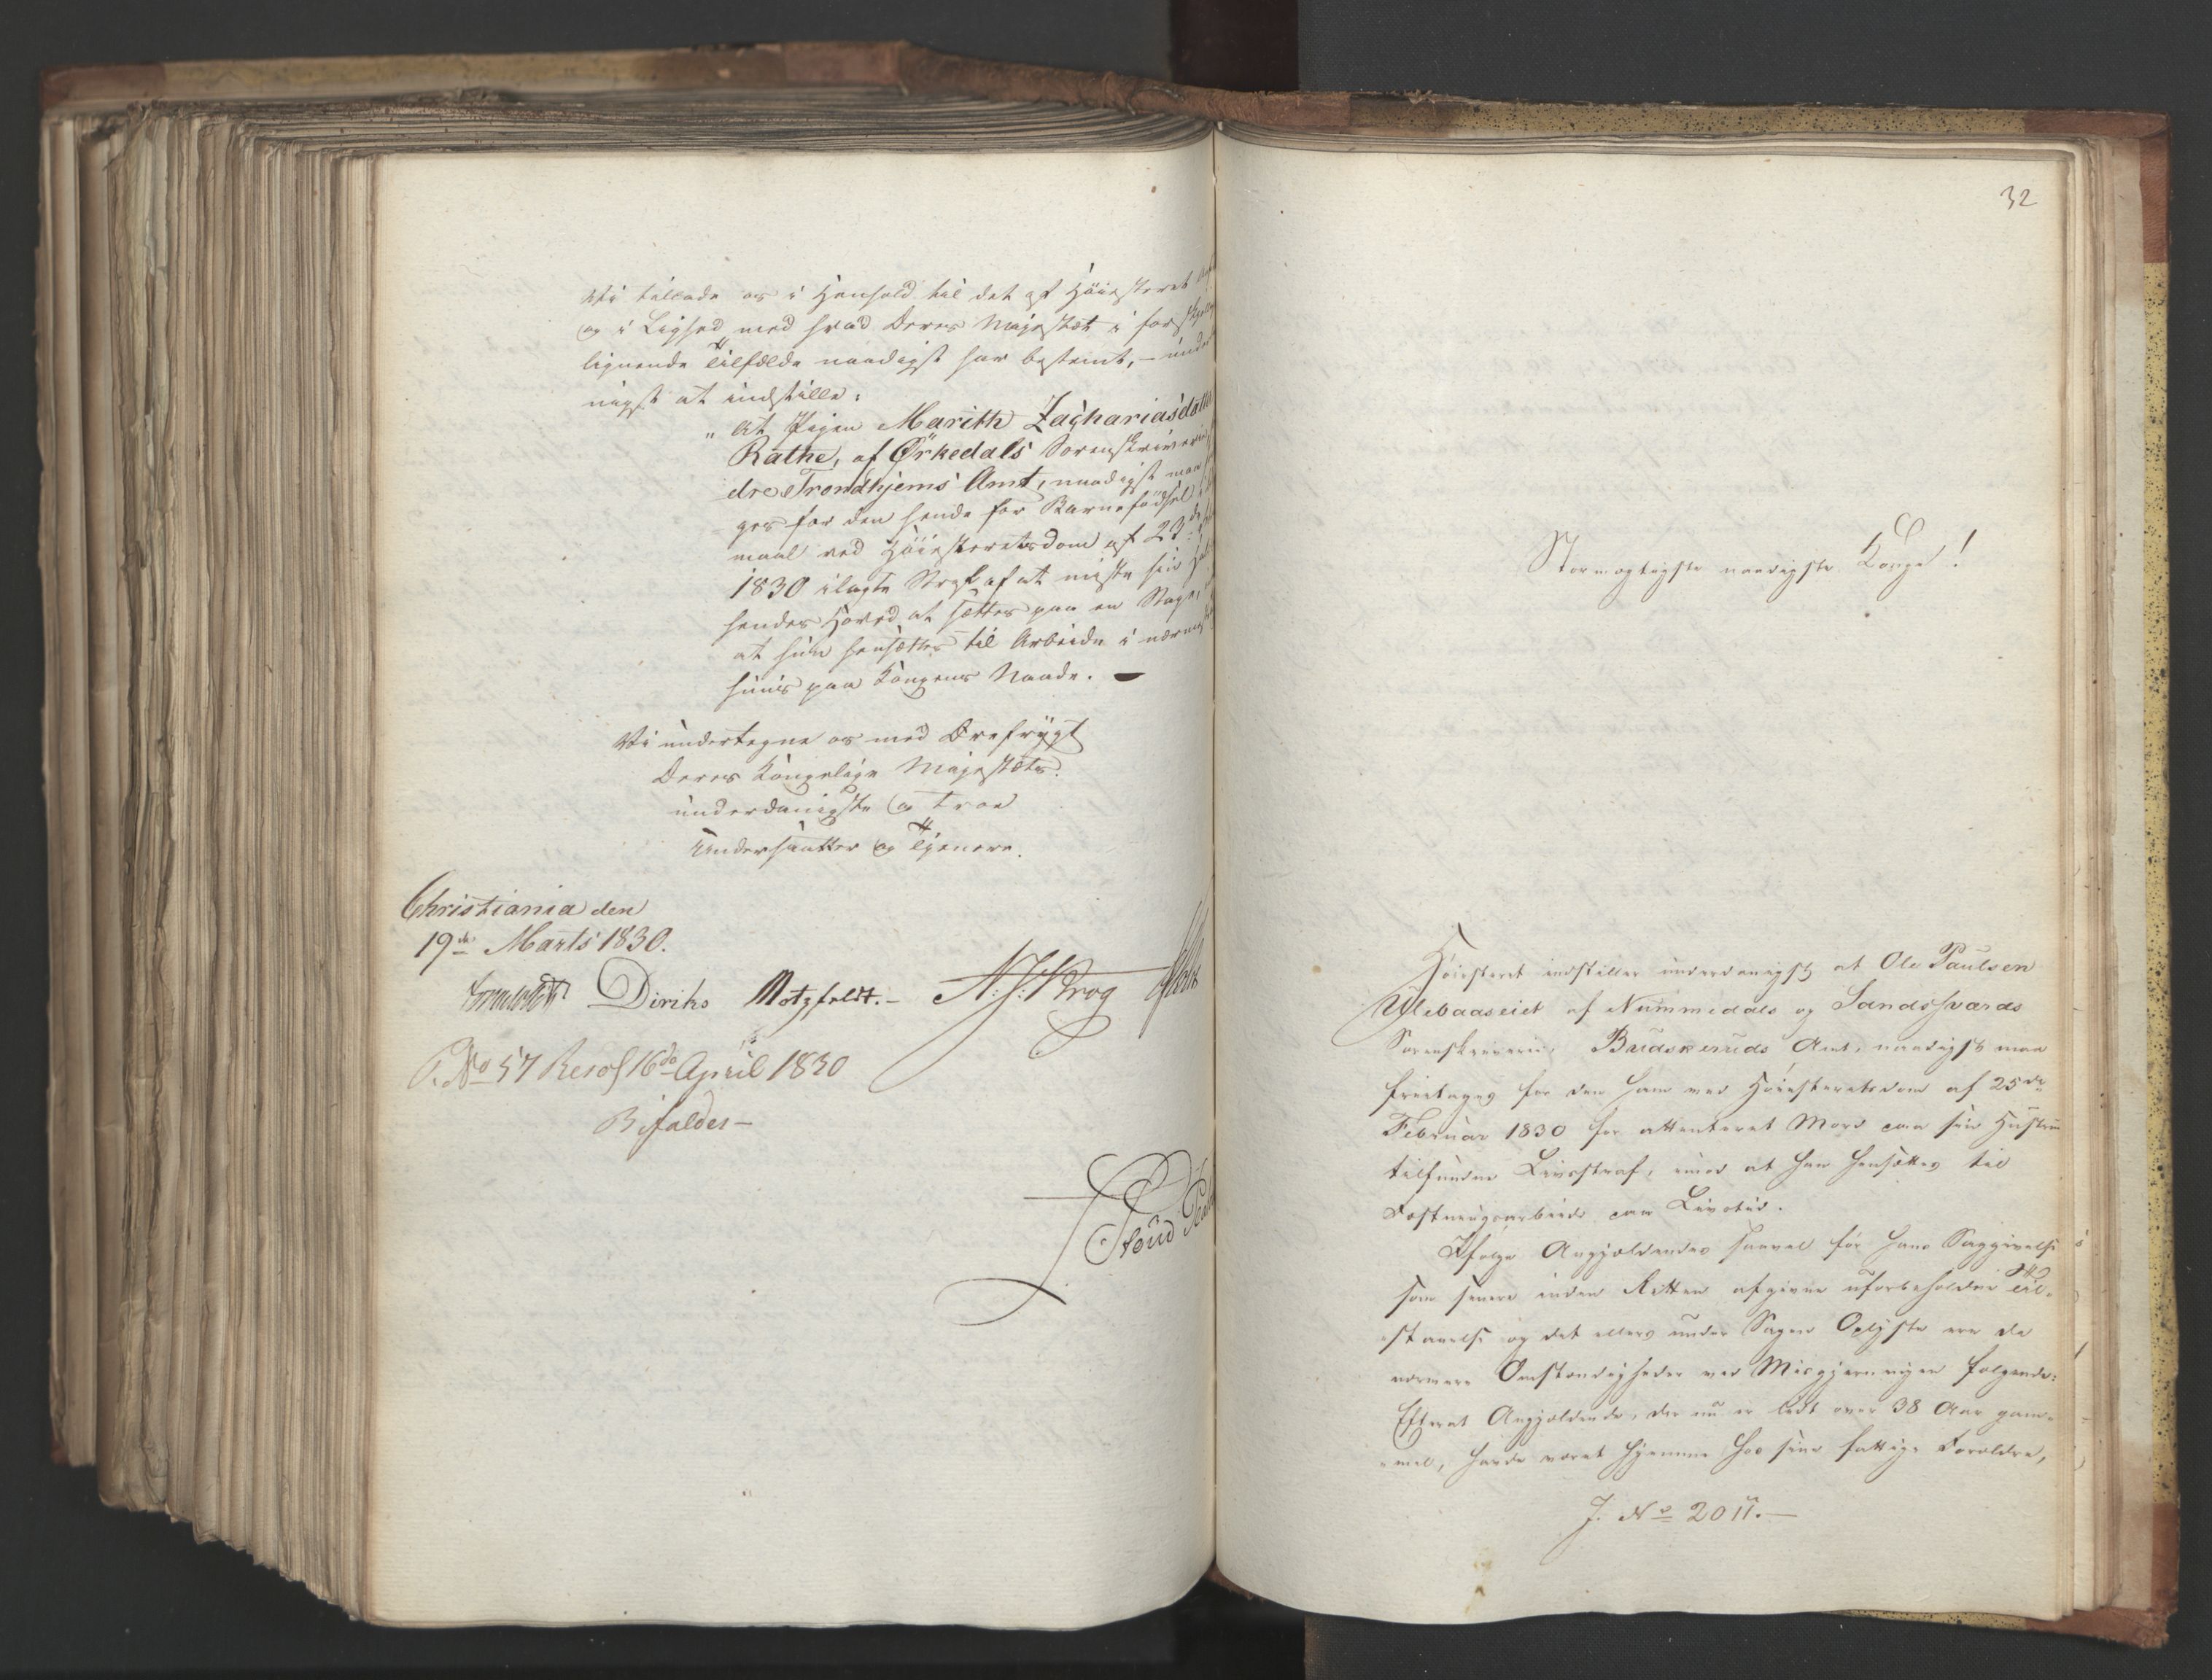 Vi tillade os i Henhold til det af Höiesteret
og i Lighed med hvad Deres Majestæt i forskjellige
lignende Tilfælde naadigst har bestemt, – under
nigst at indstille:
„At Pigen Marith Zachariasdatter
Rathe, af Ørkedals Sorenskriverie,
dre Trondhjems Amt, naadigst maa
ges for den hende for Barnefödsel i
maal ved Höiesteretsdom af 23de
1830 ilagte Straf af at miste sin Hals
hendes Hoved at sættes paa en Stage,
at hun hensættes til Arbeide i nærmeste
huus paa Kongens Naade. –
Vi undertegne os med Ærefrygt
Deres Kongelige Majestæts
underdanigste og troe
Undersaatter og Tjenere.
Christiania den
19de Marts 1830.
Diriks Motzfeldt. – N. J. Krog Holst
P. No 57 Resol 16de April 1830
Bifaldes –
32
Stormægtigste naadigste Konge!
Höiesteret indstiller underdanigst at Ole Paulsen
Ulebaaseiet af Nummedals og Sandsværds
Sorenskriverie, Buskeruds Amt, naadigst maa
fritages for den ham ved Höiesteretsdom af 25de
Februar 1830 for attenteret Mord paa sin Hustru
tilfundne Livsstraf, imod at han hensættes til
Fæstningsarbeide paa Livstid.
Ifølge Angjældendes saavel før hans Saggivelse
som senere inden Retten afgivne uforbeholdne Til-
staaelse og det ellers under Sagen Oplyste ere de
nærmere Omstændigheder ved Misgjerningen følgende:
Efterat Angjældende, der nu er lidt over 38 Aar gam-
mel, havde været hjemme hos sine fattige Forældre,
J. No 2011. –